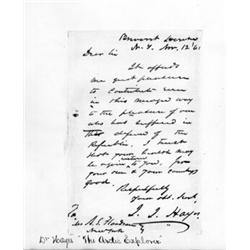 Brevoort House
N. Y. Nov. 12 '61
Dear Sir
It affords
me great pleasure
to contribute even
in this way
to the pleasure of one
who has suffered in
the defence of the
Republic. I trust
that your may
be to you, from
your own & your country's
good.
Respectfully
Your obt. Servt.
I. I. Hayes
To
New York
Dr Hayes "The Arctic Explorer"